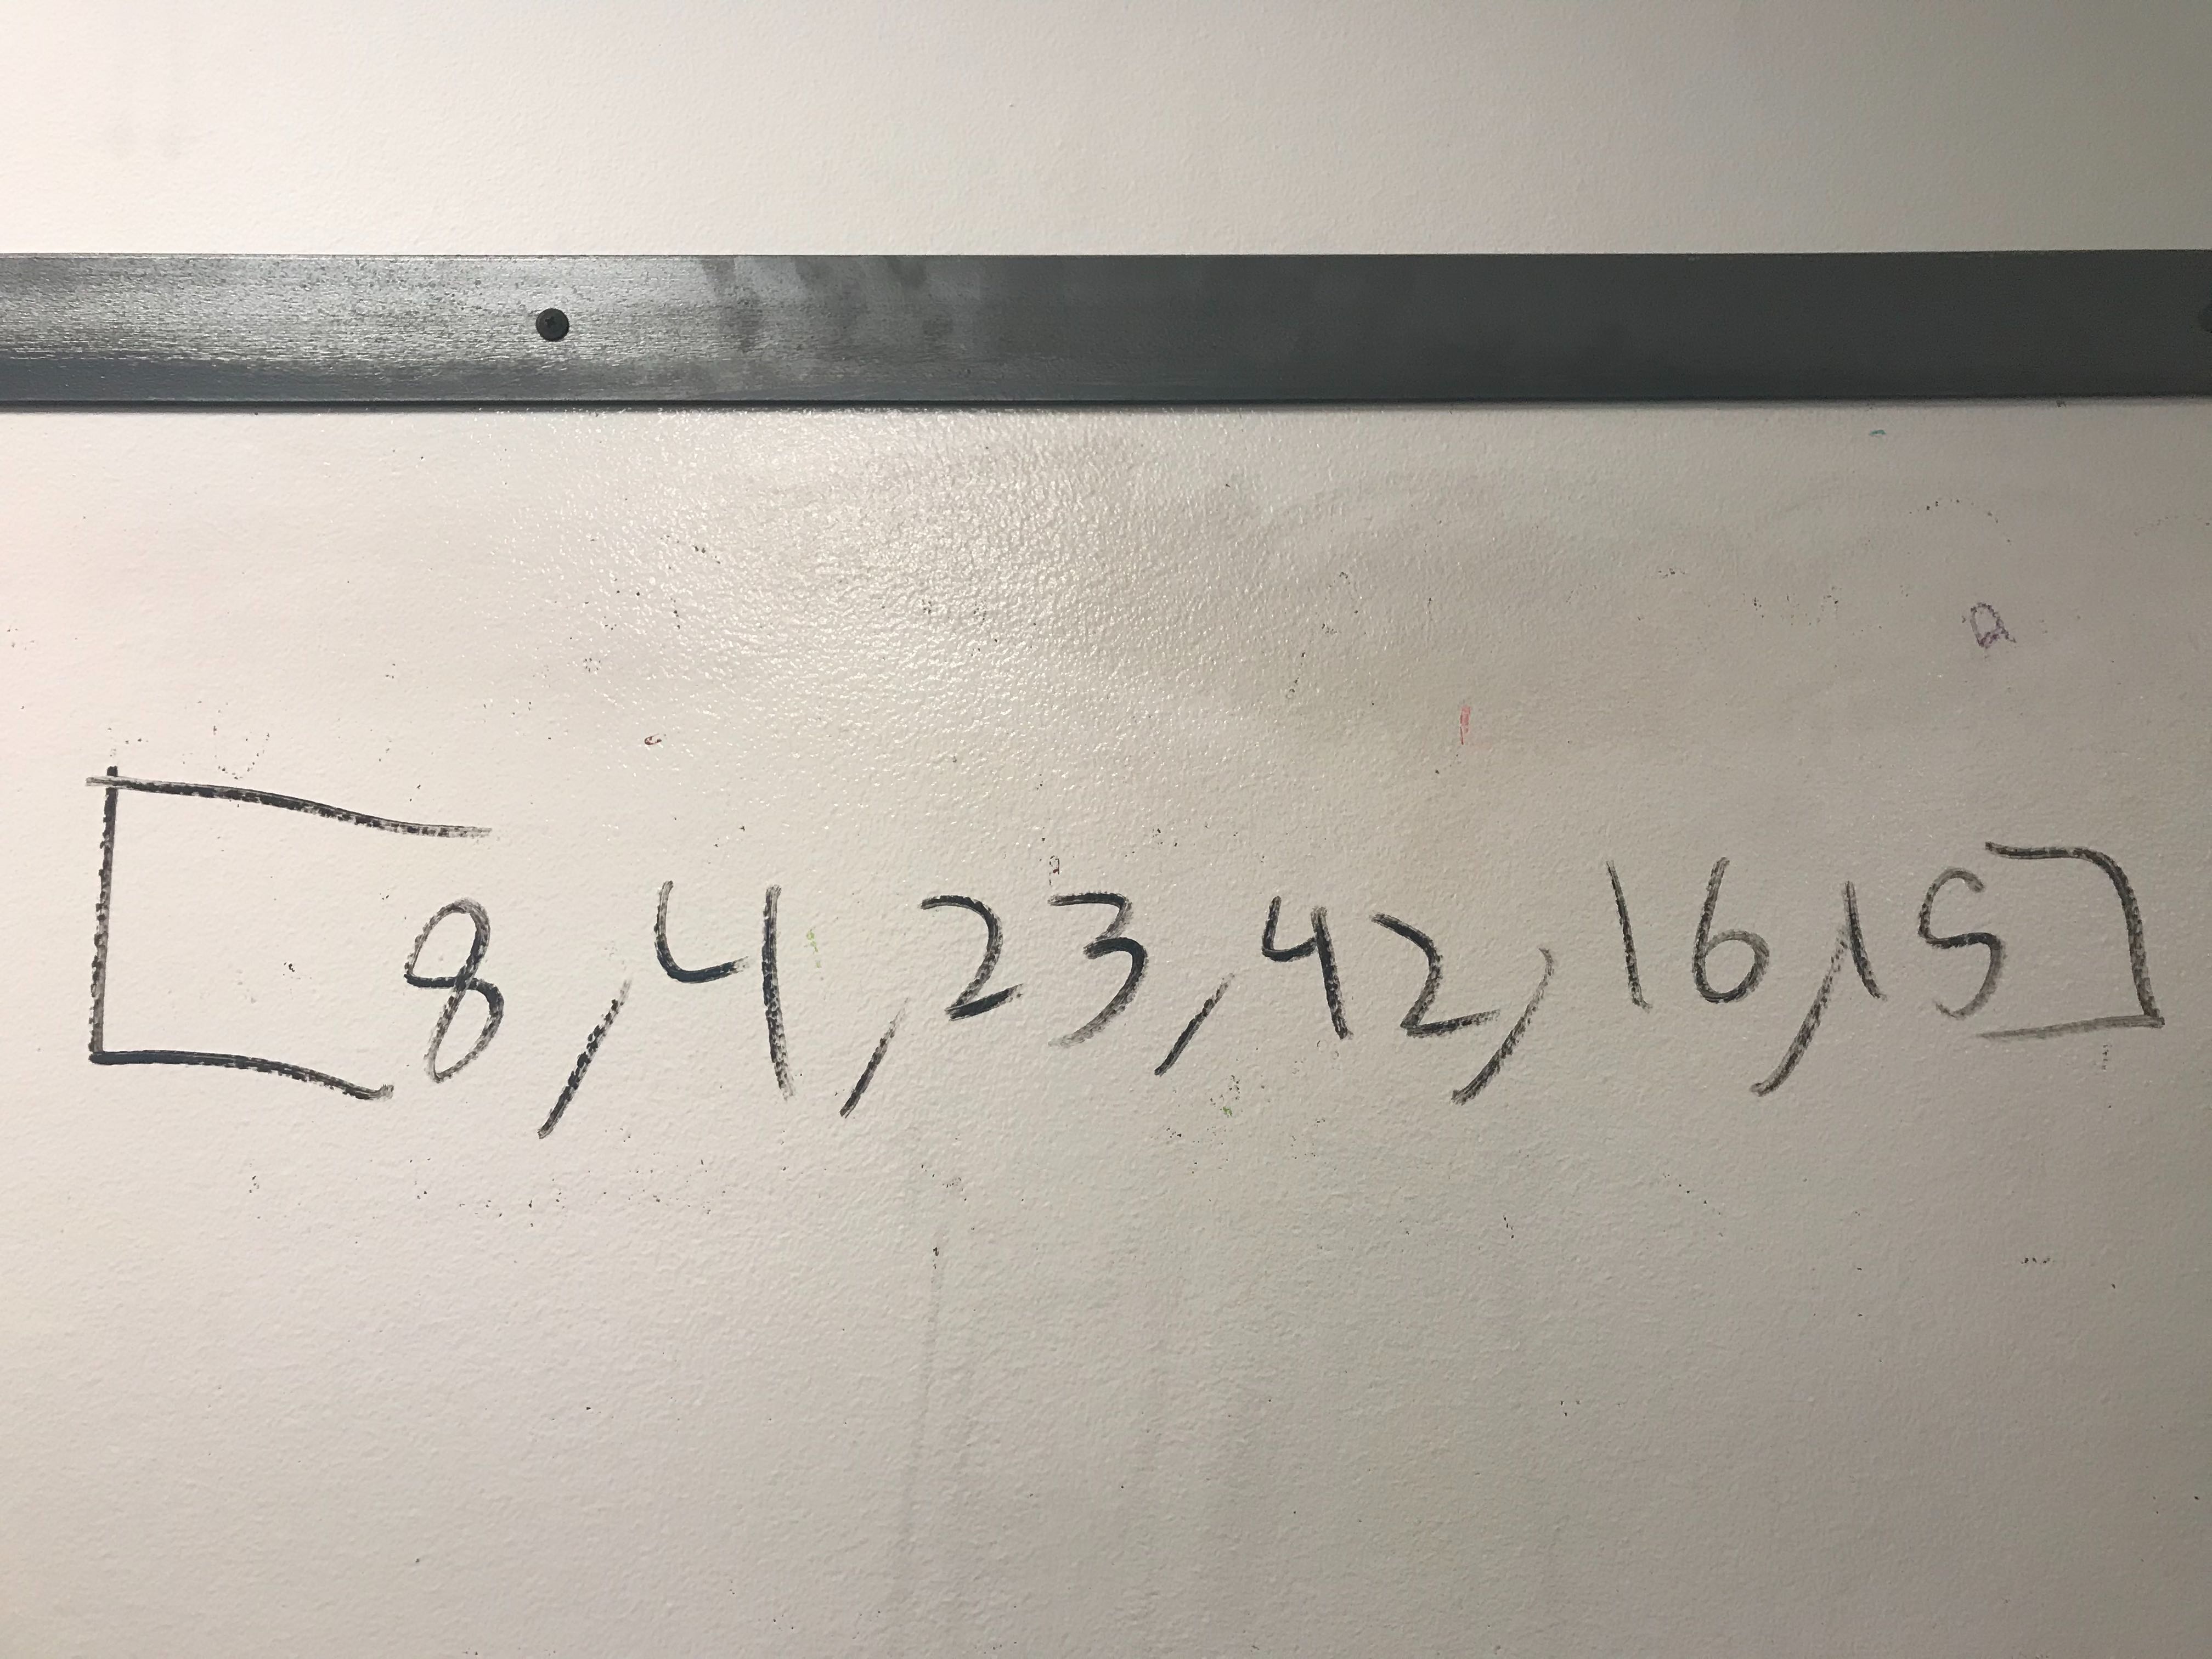 [8, 4, 23, 42, 16, 15]